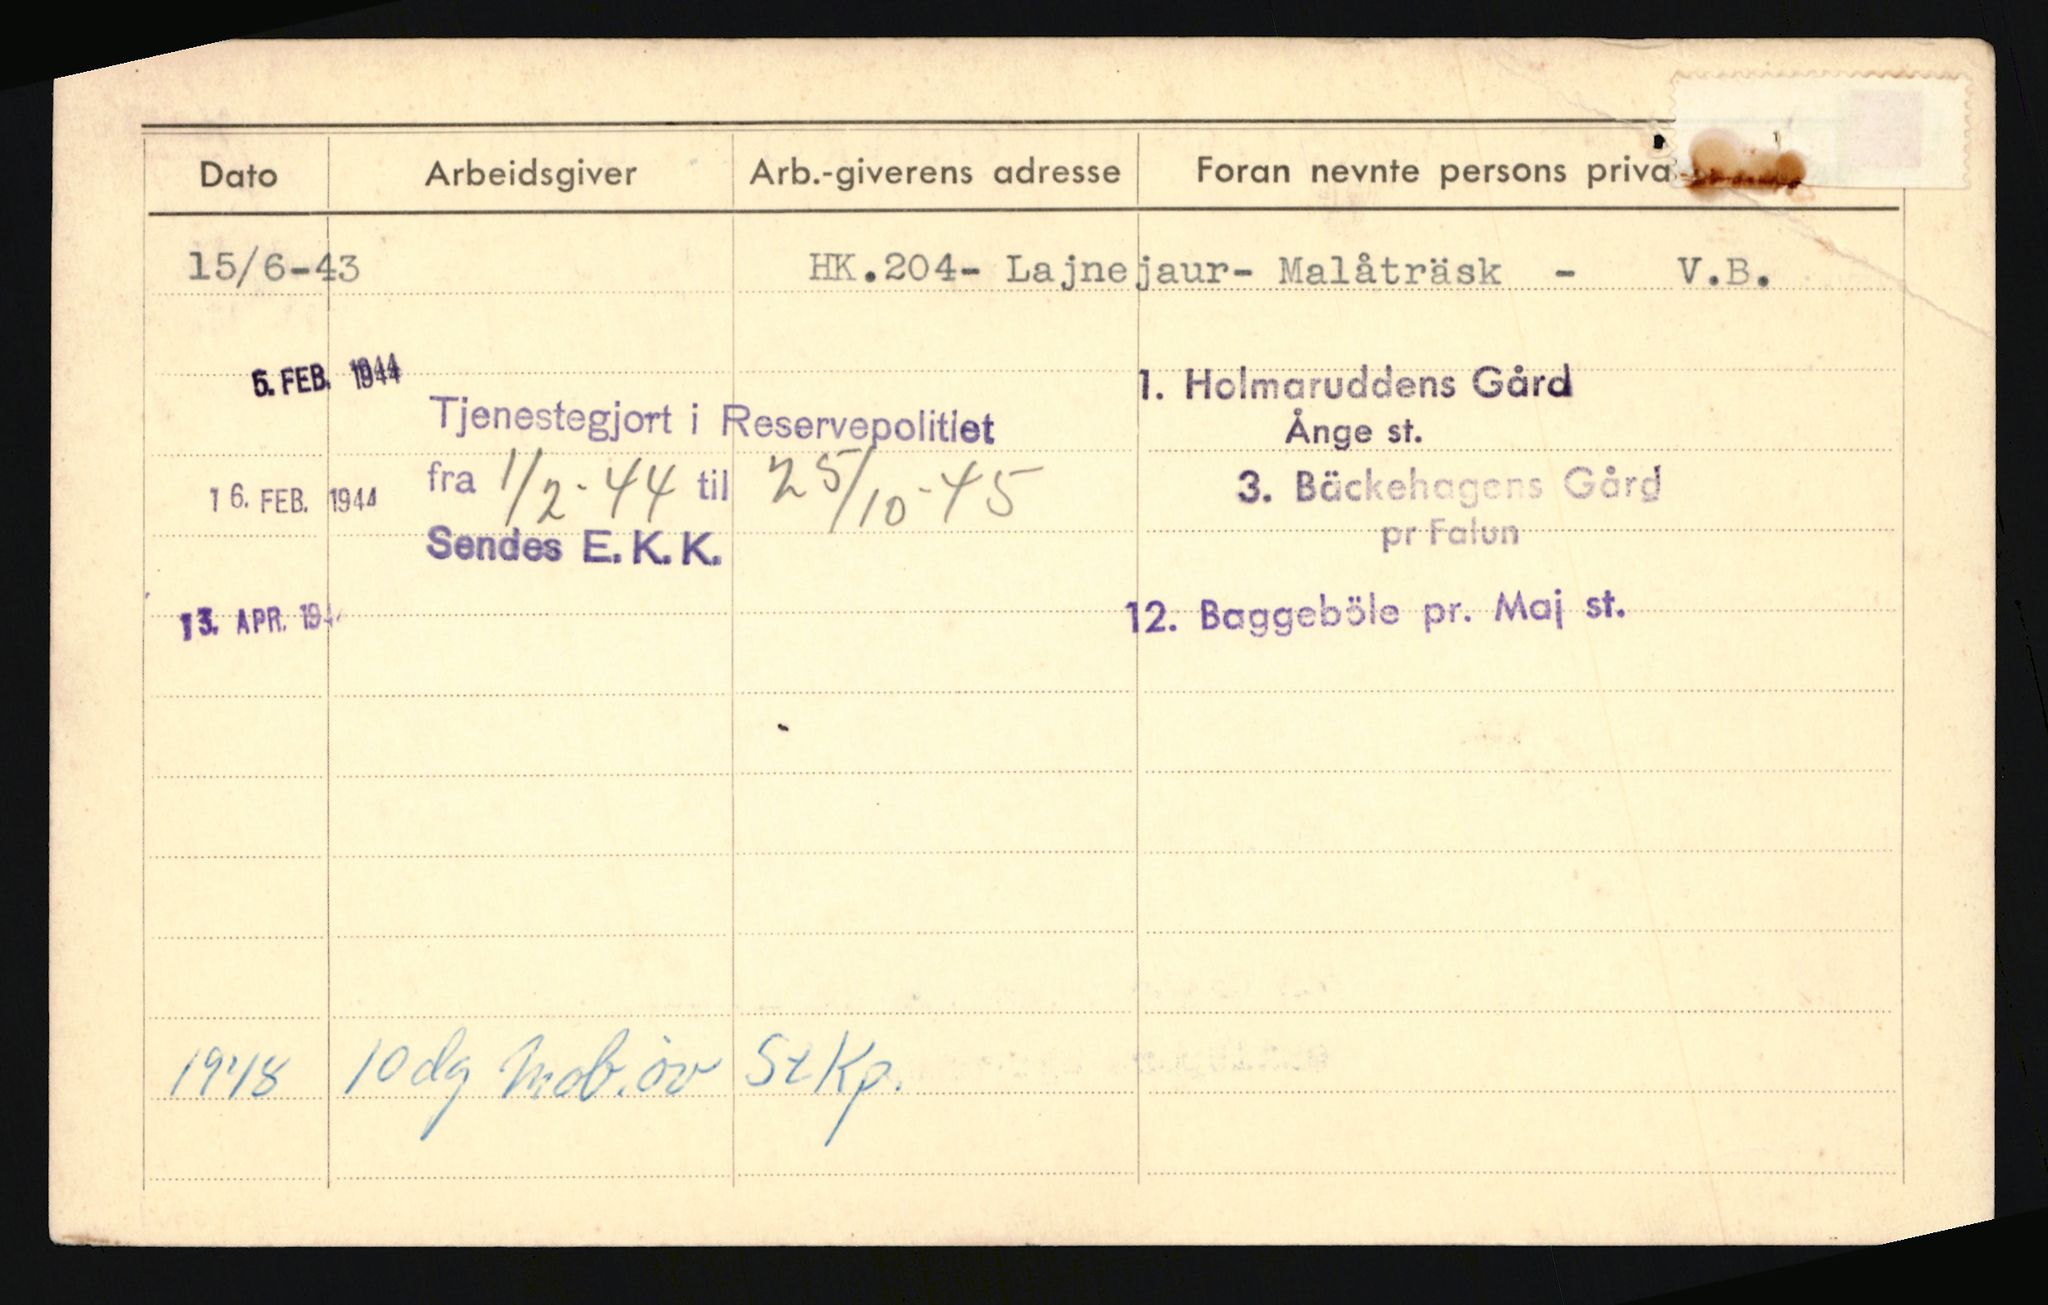 Dato Arbeidsgiver Arb.-giverens adresse Foran nevnte persons priva
15/6-43 HK.204- Lajnejaur- Malåträsk - V.B.
5. FEB. 1944 1. Holmaruddens Gård
Tjenestegjort i Reservepolitiet Ånge st.
16. FEB. 1944 fra 1/2-44 til 25/10-45 3. Bäckehagens Gård
Sendes E.K.K. pr Falun
13. APR. 194 12. Baggeböle pr. Maj st.
1948 10 dg mob.øv St Kp.